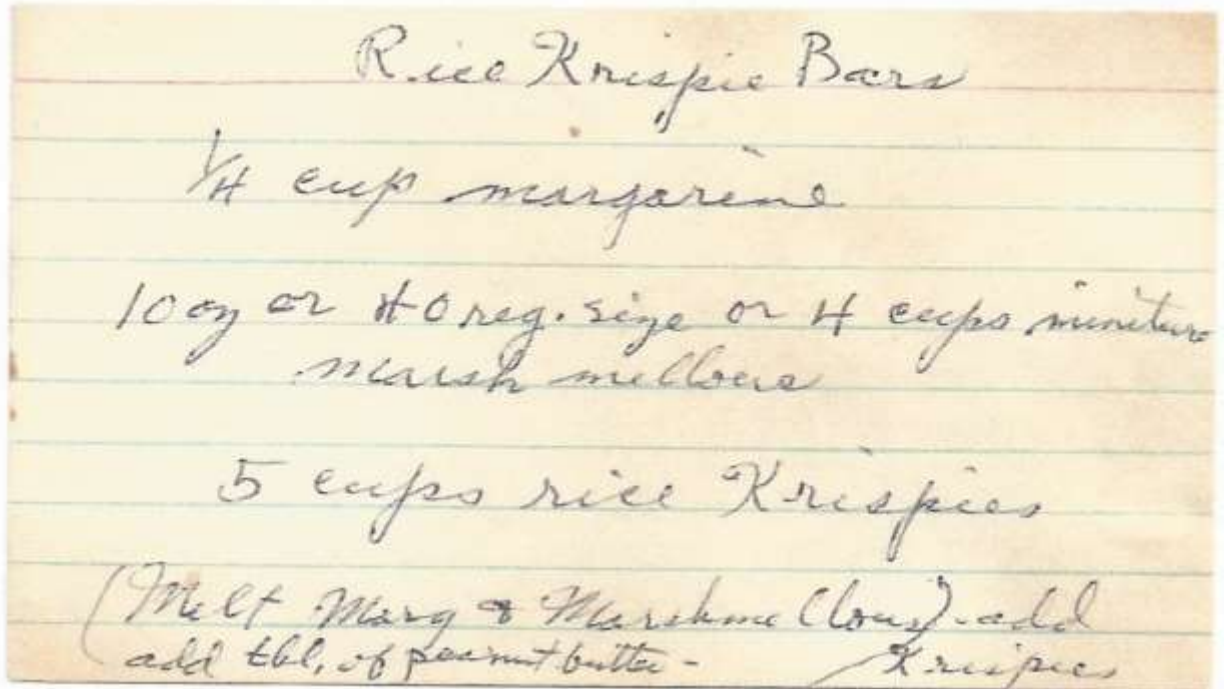 Rice Krispie Bars
1/4 cup margarine
10 oz or 40 reg. size or 4 cups miniture
marsh mellows
5 cups rice Krispies
(Melt Marg & Marshmellows) - add
add tbl. of peanut butter - / Krispies